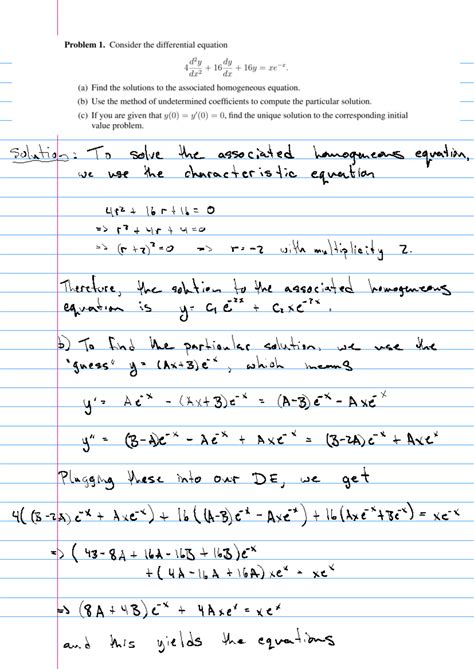 Problem 1. Consider the differential equation
4 d²y/dx² + 16 dy/dx + 16y = xe⁻ˣ.
(a) Find the solutions to the associated homogeneous equation.
(b) Use the method of undetermined coefficients to compute the particular solution.
(c) If you are given that y(0) = y′(0) = 0, find the unique solution to the corresponding initial
value problem.
Solution: To solve the associated homogeneous equation,
we use the characteristic equation
4r² + 16r + 16 = 0
=> r² + 4r + 4 = 0
=> (r + 2)² = 0 => r = -2 with multiplicity 2.
Therefore, the solution to the associated homogeneous
equation is y = C₁e⁻²ˣ + C₂xe⁻²ˣ.
b) To find the particular solution, we use the
"guess" y = (Ax+B)e⁻ˣ, which means
y' = Ae⁻ˣ - (Ax+B)e⁻ˣ = (A-B)e⁻ˣ - Axe⁻ˣ
y" = (B-A)e⁻ˣ - Ae⁻ˣ + Axe⁻ˣ = (B-2A)e⁻ˣ + Axeˣ
Plugging these into our DE, we get
4((B-2A)e⁻ˣ + Axe⁻ˣ) + 16((A-B)e⁻ˣ - Axe⁻ˣ) + 16(Axe⁻ˣ+Be⁻ˣ) = xe⁻ˣ
=> (4B - 8A + 16A - 16B + 16B)e⁻ˣ
+ (4A - 16A + 16A)xeˣ = xeˣ
=> (8A + 4B)e⁻ˣ + 4Axeˣ = xeˣ
and this yields the equations